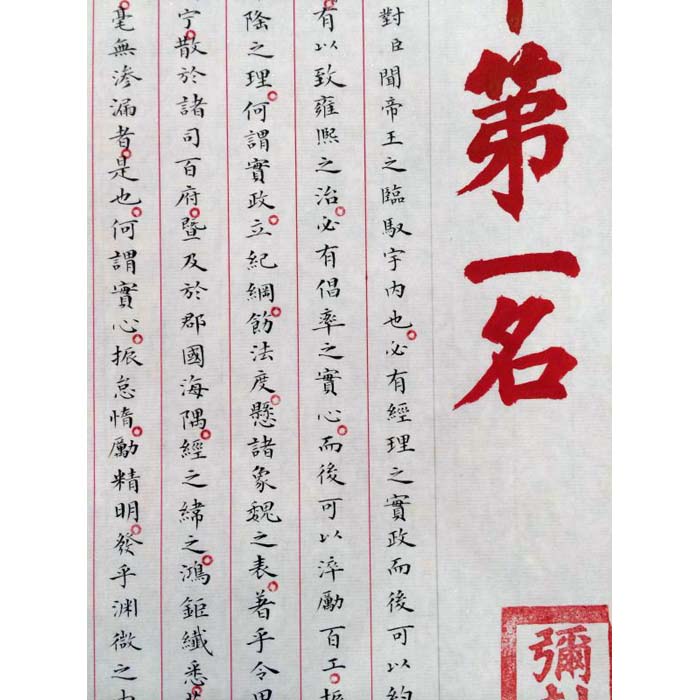 第一名
彌
對臣聞帝王之臨馭宇內也必有經理之實政而後可以約
有以致雍熙之治必有倡率之實心而後可以淬勵百工
隆之理何謂實政立紀綱飭法度懸諸象魏之表著乎令
宁散於諸司百府暨及於郡國海隅經之緯之鴻鉅纖悉
毫無渗漏者是也何謂實心振怠惰勵精明發乎淵微之